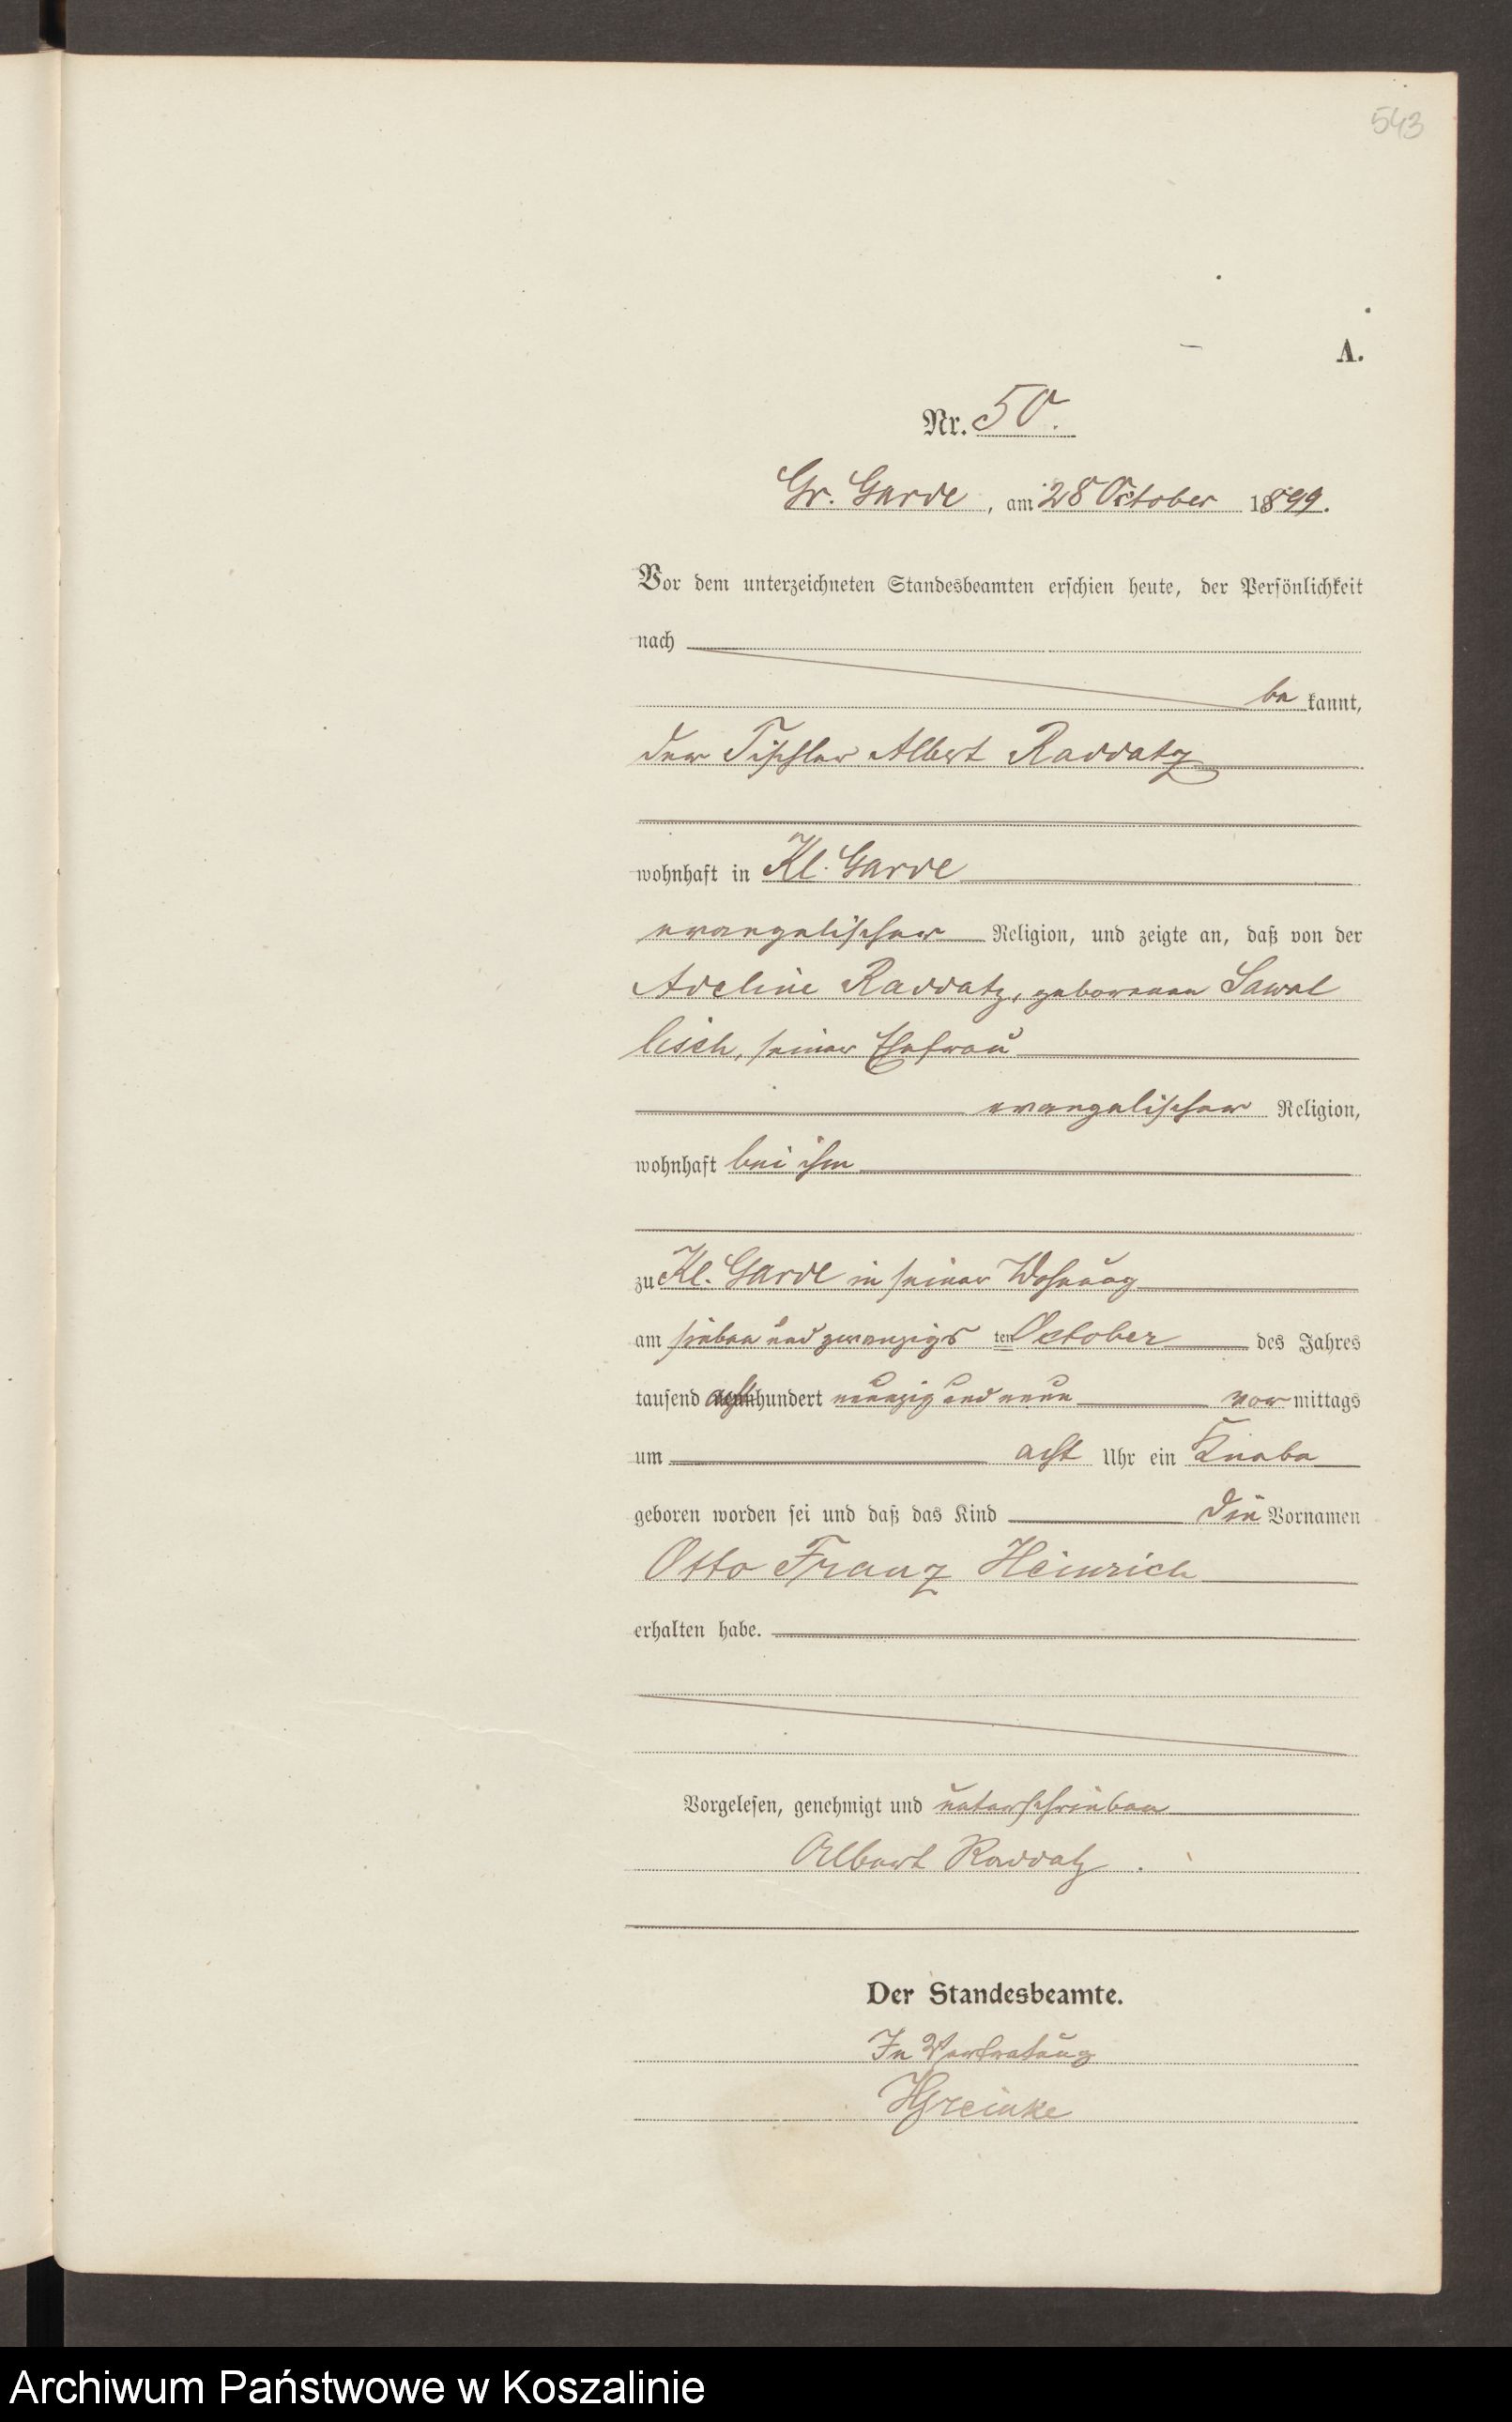 543
A.
Nr. 50.
Gr. Garde, am 28 October 1899.
Vor dem unterzeichneten Standesbeamten erschien heute, der Persönlichkeit
nach
be kannt,
der Tischler Albert Raddatz
wohnhaft in Kl. Garde
evangelischer Religion, und zeigte an, daß von der
Adeline Raddatz, geborenen Sawal
lisch, seiner Ehefrau
evangelischer Religion,
wohnhaft bei ihm
zu Kl. Garde in seiner Wohnung
am sieben und zwanzigs ten October des Jahres
tausend acht hundert neunzig und neun vor mittags
um acht Uhr ein Knabe
geboren worden sei und daß das Kind die Vornamen
Otto Franz Heinrich
erhalten habe.
Vorgelesen, genehmigt und unterschrieben
Albert Raddatz.
Der Standesbeamte.
In Vertretung
HGreinke
Archiwum Państwowe w Koszalinie